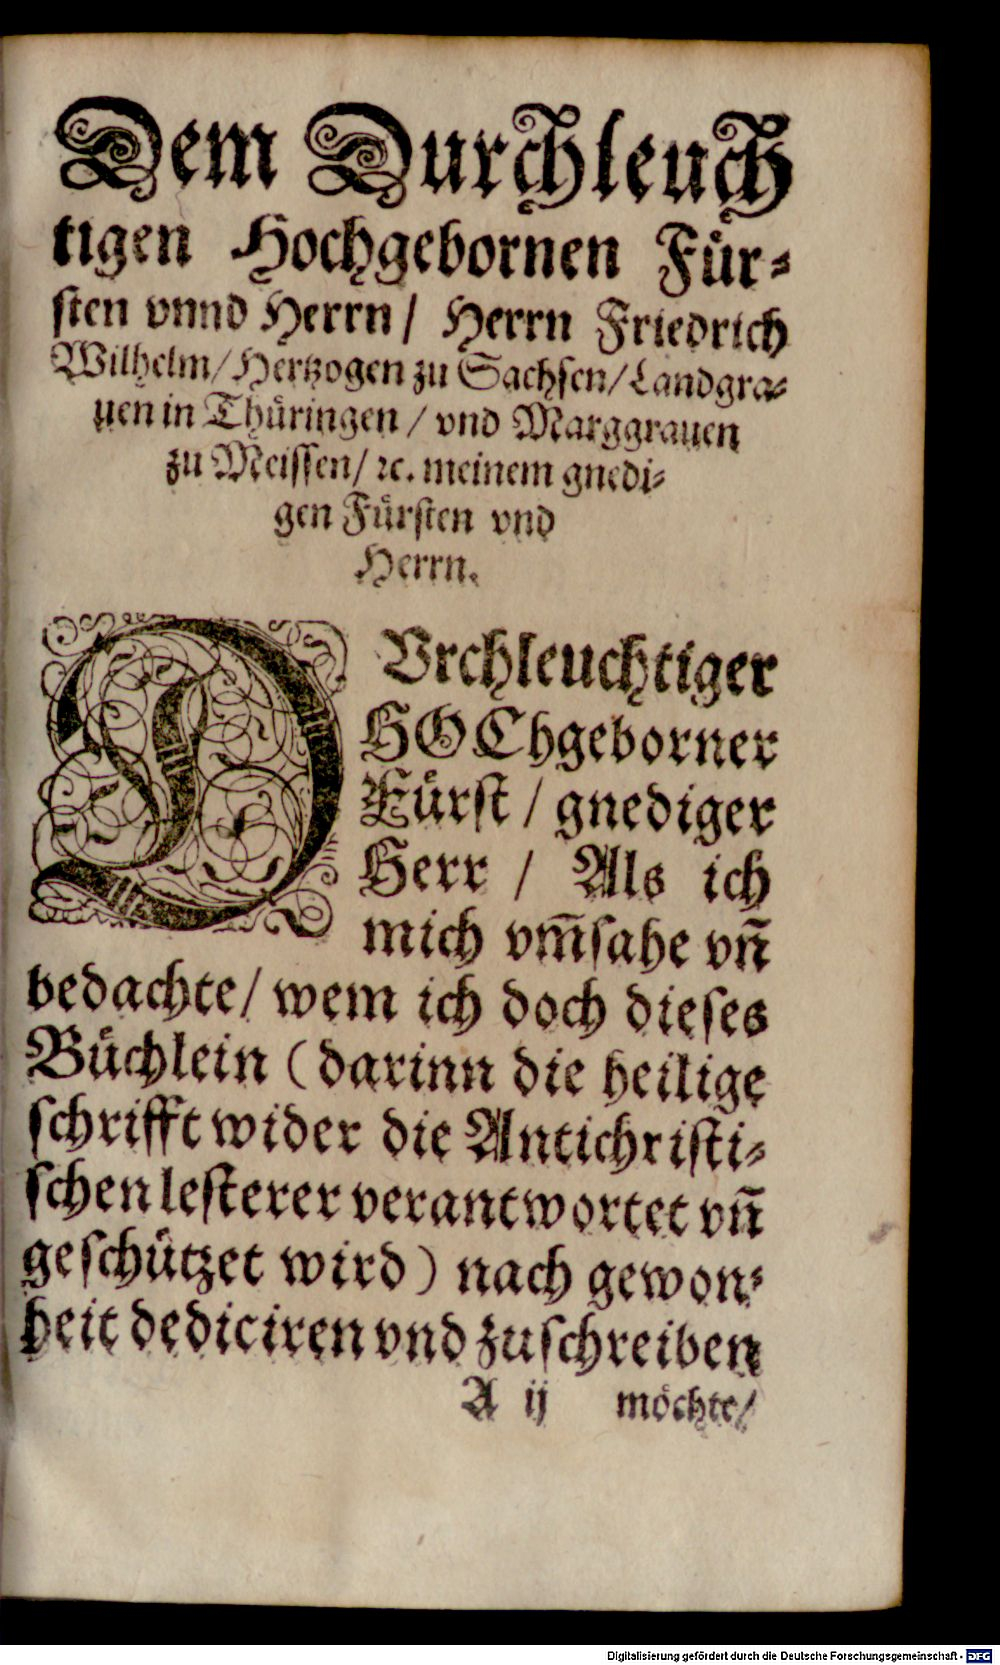 Dem Durchleuch
tigen Hochgebornen Für-
sten vnnd Herrn / Herrn Friedrich
Wilhelm / Hertzogen zu Sachsen / Landgra-
uen in Thüringen / vnd Marggrauen
zu Meissen / ꝛc. meinem gnedi-
gen Fürsten vnd
Herrn.
DVrchleuchtiger
HOChgeborner
Fürst / gnediger
Herr / Als ich
mich vm̄sahe vn̄
bedachte / wem ich doch dieses
Büchlein (darinn die heilige
schrifft wider die Antichristi-
schen lesterer verantwortet vn̄
geschützet wird) nach gewon-
heit dediciren vnd zuschreiben
A ij möchte /
Digitalisierung gefördert durch die Deutsche Forschungsgemeinschaft - DFG